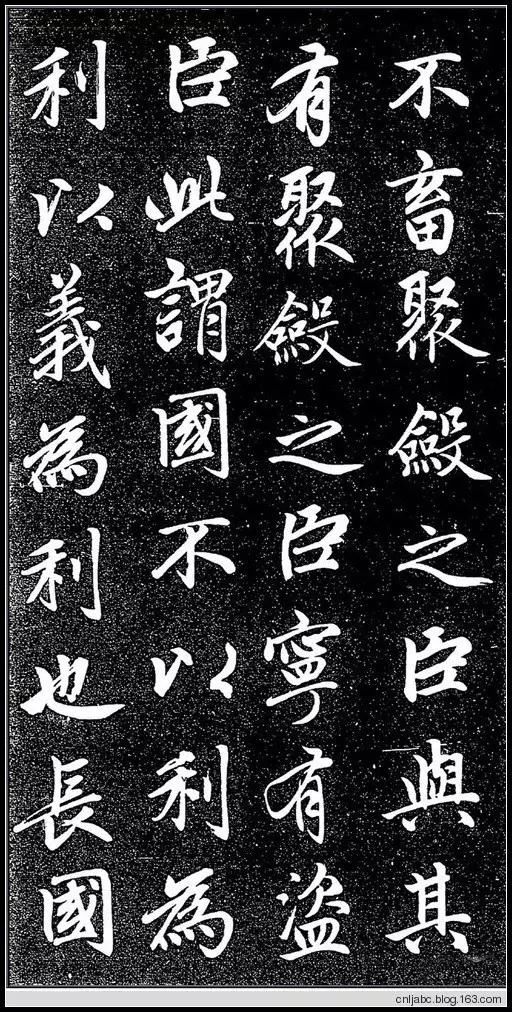 不畜聚斂之臣與其
有聚斂之臣寧有盜
臣此謂國不以利為
利以義為利也長國
cnljabc.blog.163.com